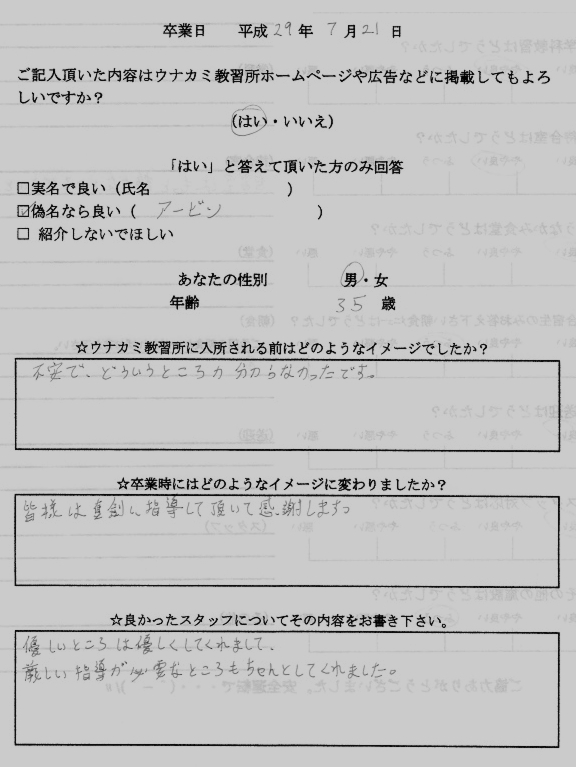 卒業日 平成 29 年 7 月 21 日
ご記入頂いた内容はウナカミ教習所ホームページや広告などに掲載してもよろ
しいですか？
(はい・いいえ)
「はい」と答えて頂いた方のみ回答
□実名で良い（氏名 ）
☑偽名なら良い（ アービン ）
□ 紹介しないでほしい
あなたの性別 男・女
年齢 35 歳
☆ウナカミ教習所に入所される前はどのようなイメージでしたか？
不安で、どういうところか分からなかったです。
☆卒業時にはどのようなイメージに変わりましたか？
皆様は真剣に指導して頂いて感謝します。
☆良かったスタッフについてその内容をお書き下さい。
優しいところは優しくしてくれまして、
厳しい指導が必要なところもちゃんとしてくれました。